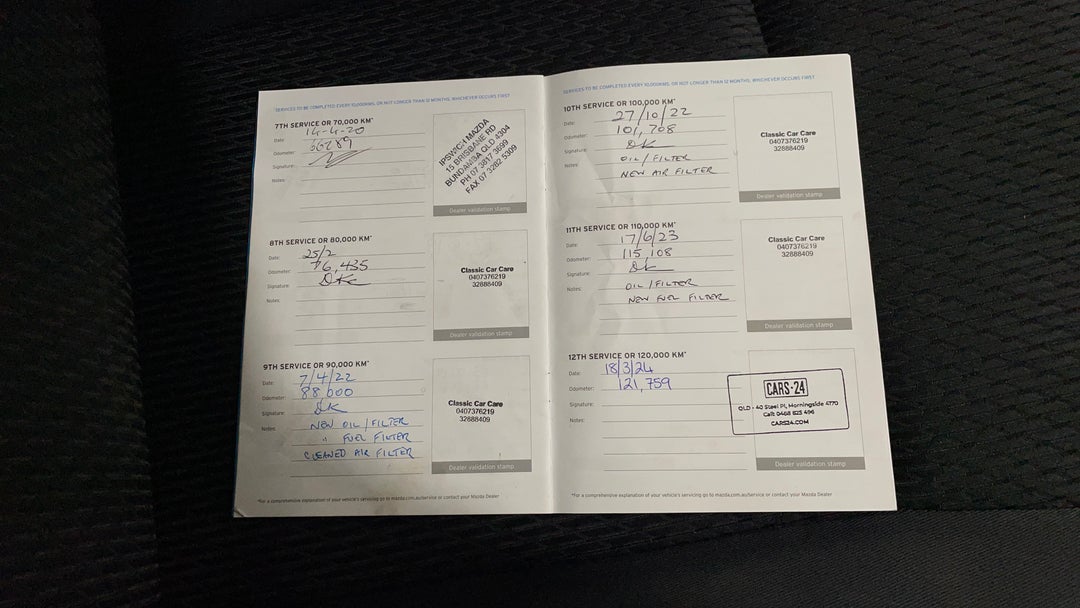 SERVICES TO BE COMPLETED EVERY 10,000KMS, OR NOT LONGER THAN 12 MONTHS, WHICHEVER OCCURS FIRST
7TH SERVICE OR 70,000 KM*
Date: 14-4-20
Odometer: 66289
Signature:
Notes:
IPSWICH MAZDA
15 BRISBANE RD
BUNDAMBA QLD 4304
PH 07 3817 3699
FAX 07 3282 5309
Dealer validation stamp
8TH SERVICE OR 80,000 KM*
Date: 25/2
Odometer: 76,435
Signature: DK
Notes:
Classic Car Care
0407376219
32888409
Dealer validation stamp
9TH SERVICE OR 90,000 KM*
Date: 7/4/22
Odometer: 88,000
Signature: DK
Notes: NEW OIL/FILTER
" FUEL FILTER
CLEANED AIR FILTER
Classic Car Care
0407376219
32888409
Dealer validation stamp
*For a comprehensive explanation of your vehicle's servicing go to mazda.com.au/service or contact your Mazda Dealer
SERVICES TO BE COMPLETED EVERY 10,000KMS, OR NOT LONGER THAN 12 MONTHS, WHICHEVER OCCURS FIRST
10TH SERVICE OR 100,000 KM*
Date: 27/10/22
Odometer: 101,708
Signature: DK
Notes: OIL/FILTER
NEW AIR FILTER
Classic Car Care
0407376219
32888409
Dealer validation stamp
11TH SERVICE OR 110,000 KM*
Date: 17/6/23
Odometer: 115,108
Signature: DK
Notes: OIL/FILTER
NEW FUEL FILTER
Classic Car Care
0407376219
32888409
Dealer validation stamp
12TH SERVICE OR 120,000 KM*
Date: 18/3/24
Odometer: 121,759
Signature:
Notes:
CARS·24
QLD - 40 Steel Pl, Morningside 4170
Call: 0468 825 496
CARS24.COM
Dealer validation stamp
*For a comprehensive explanation of your vehicle's servicing go to mazda.com.au/service or contact your Mazda Dealer